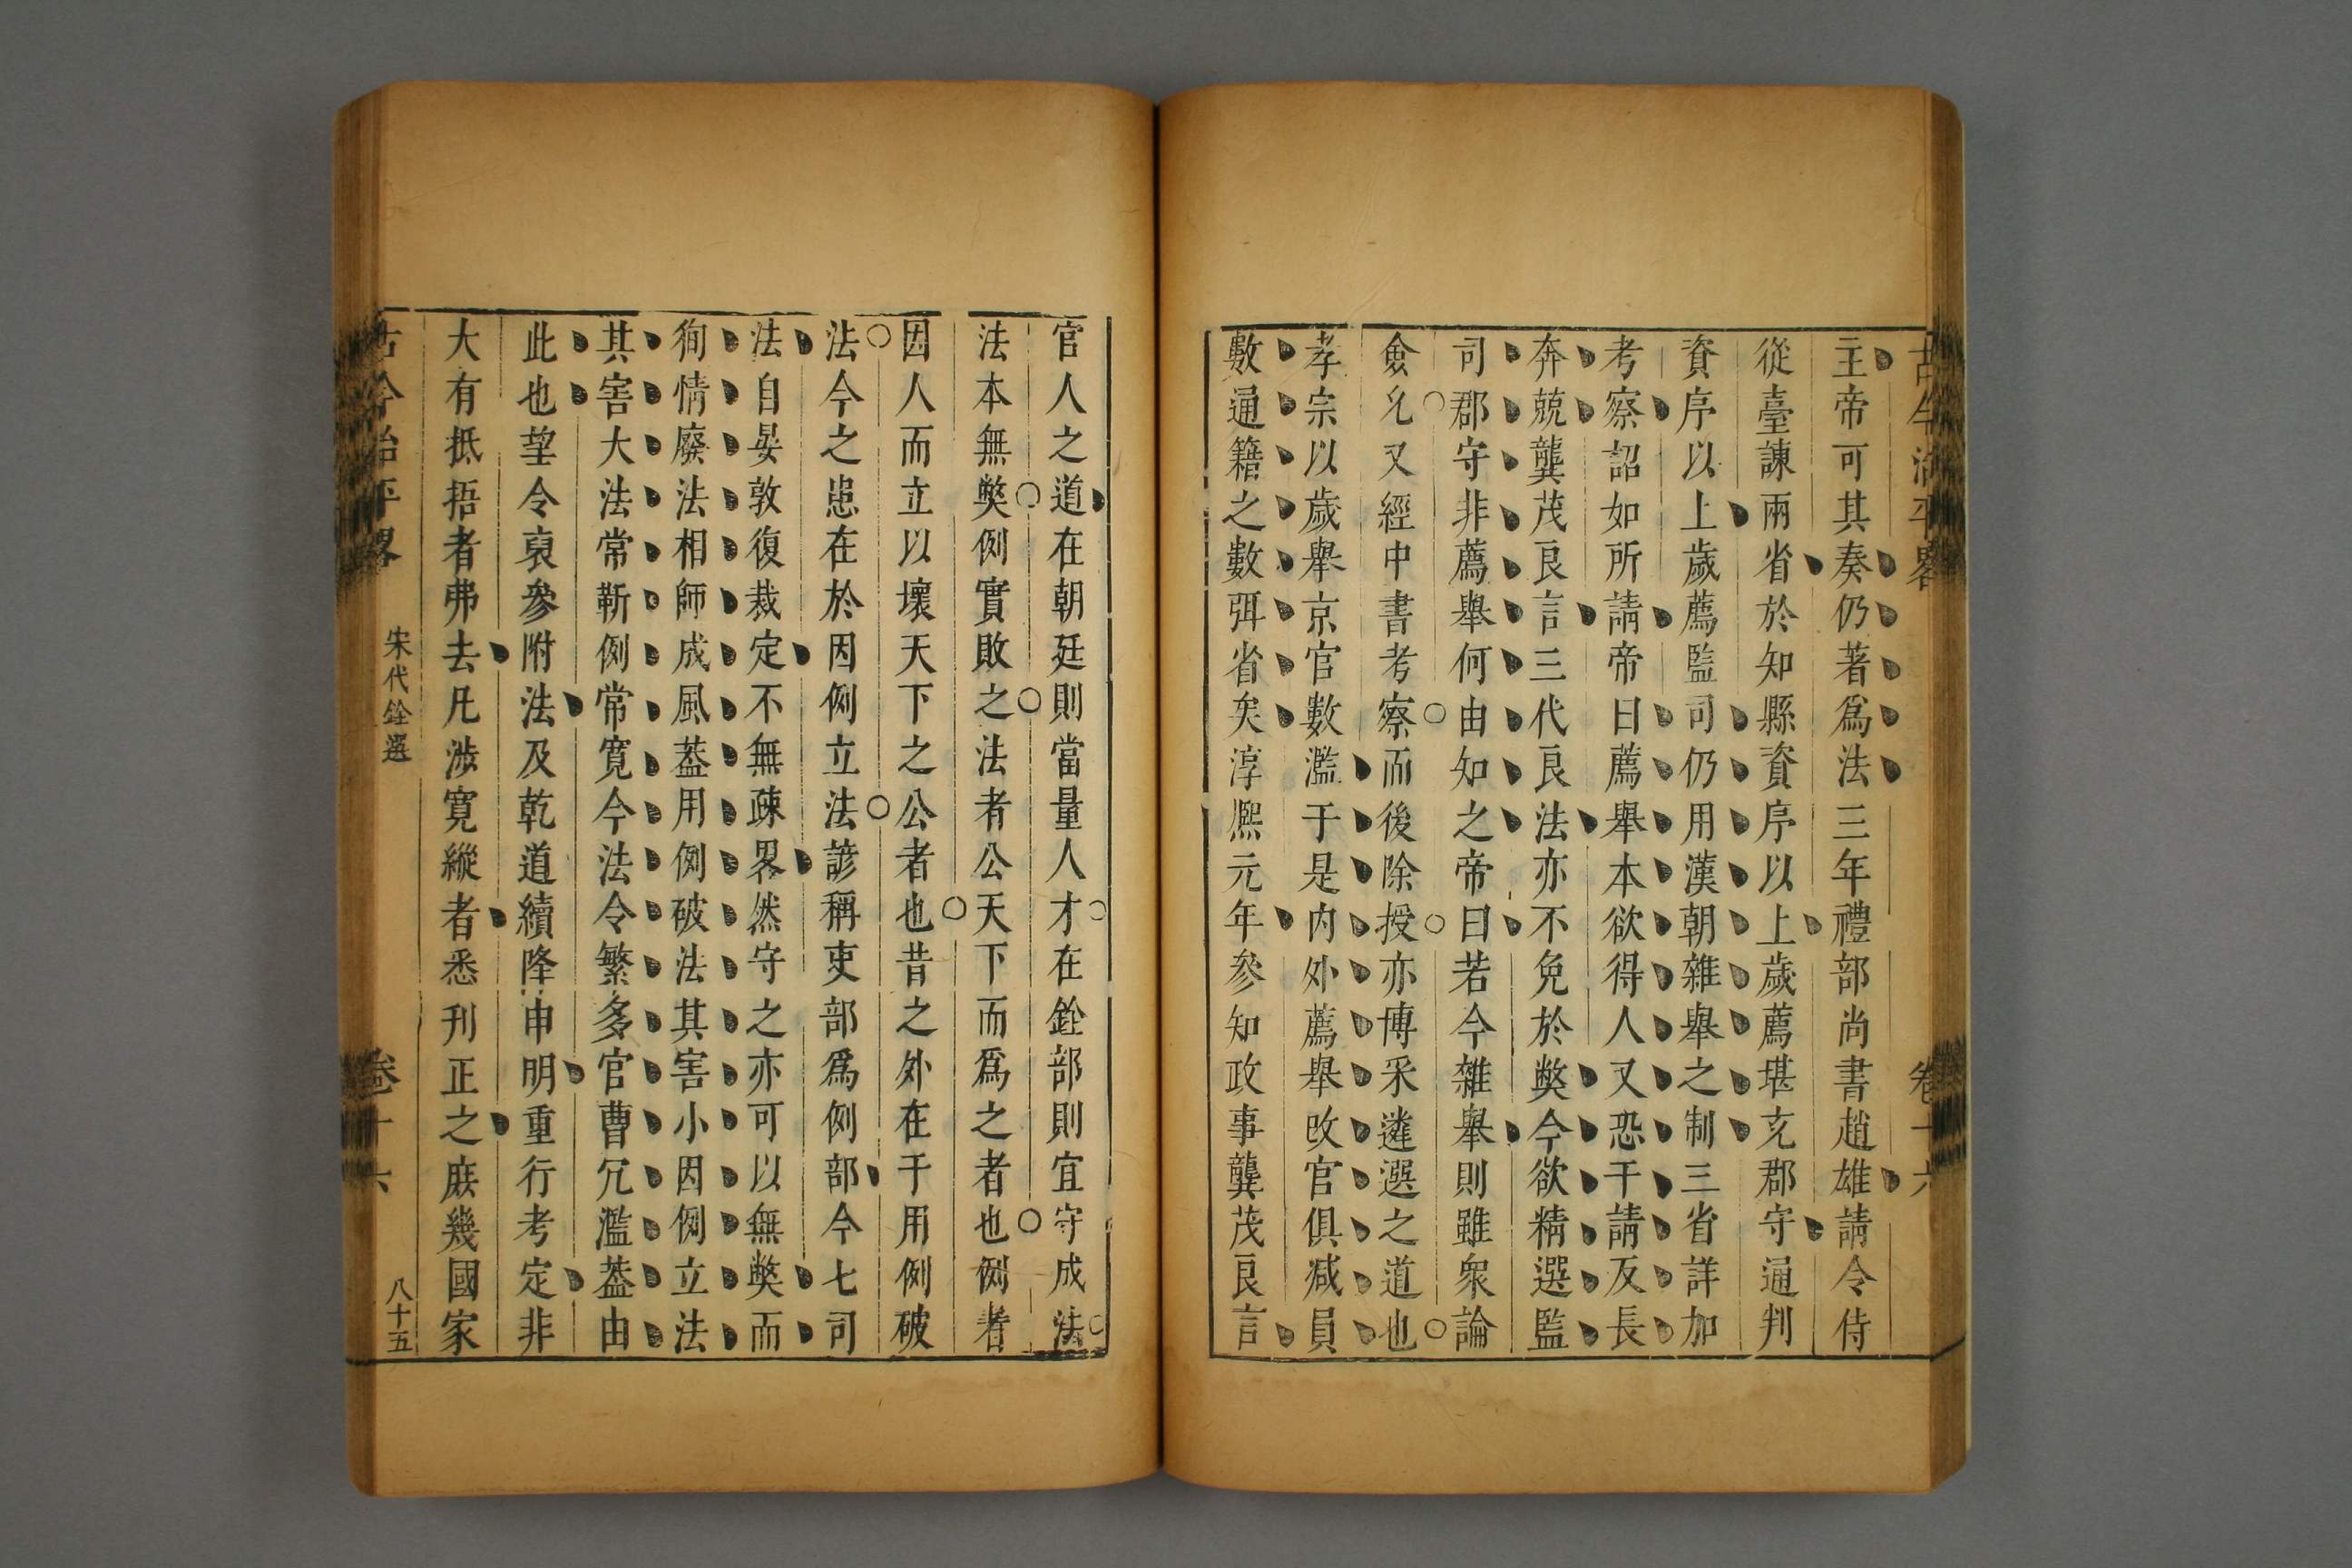 古今治平畧 卷十六
主帝可其奏仍著爲法三年禮部尚書趙雄請令侍
從臺諫兩省於知縣資序以上歲薦堪充郡守通判
資序以上歲薦監司仍用漢朝雜舉之制三省詳加
考察詔如所請帝曰薦舉本欲得人又恐干請反長
奔兢龔茂良言三代良法亦不免於獘今欲精選監
司郡守非薦舉何由知之帝曰若今雜舉則雖衆論
僉允又經中書考察而後除授亦博采遴選之道也
孝宗以歲舉京官數濫于是内外薦舉改官俱減員
數通籍之數弭省矣淳熈元年參知政事龔茂良言
官人之道在朝廷則當量人才在銓部則宜守成法
法本無獘例實敗之法者公天下而爲之者也例者
因人而立以壞天下之公者也昔之外在于用例破
法今之患在於因例立法諺稱吏部爲例部今七司
法自晏敦復裁定不無疎畧然守之亦可以無獘而
徇情廢法相師成風葢用例破法其害小因例立法
其害大法常靳例常寛今法令繁多官曹冗濫葢由
此也望令裒參附法及乾道續降申明重行考定非
大有抵捂者弗去凡涉寛縱者悉刋正之庶幾國家
古今治平畧 宋代銓選 卷十六 八十五